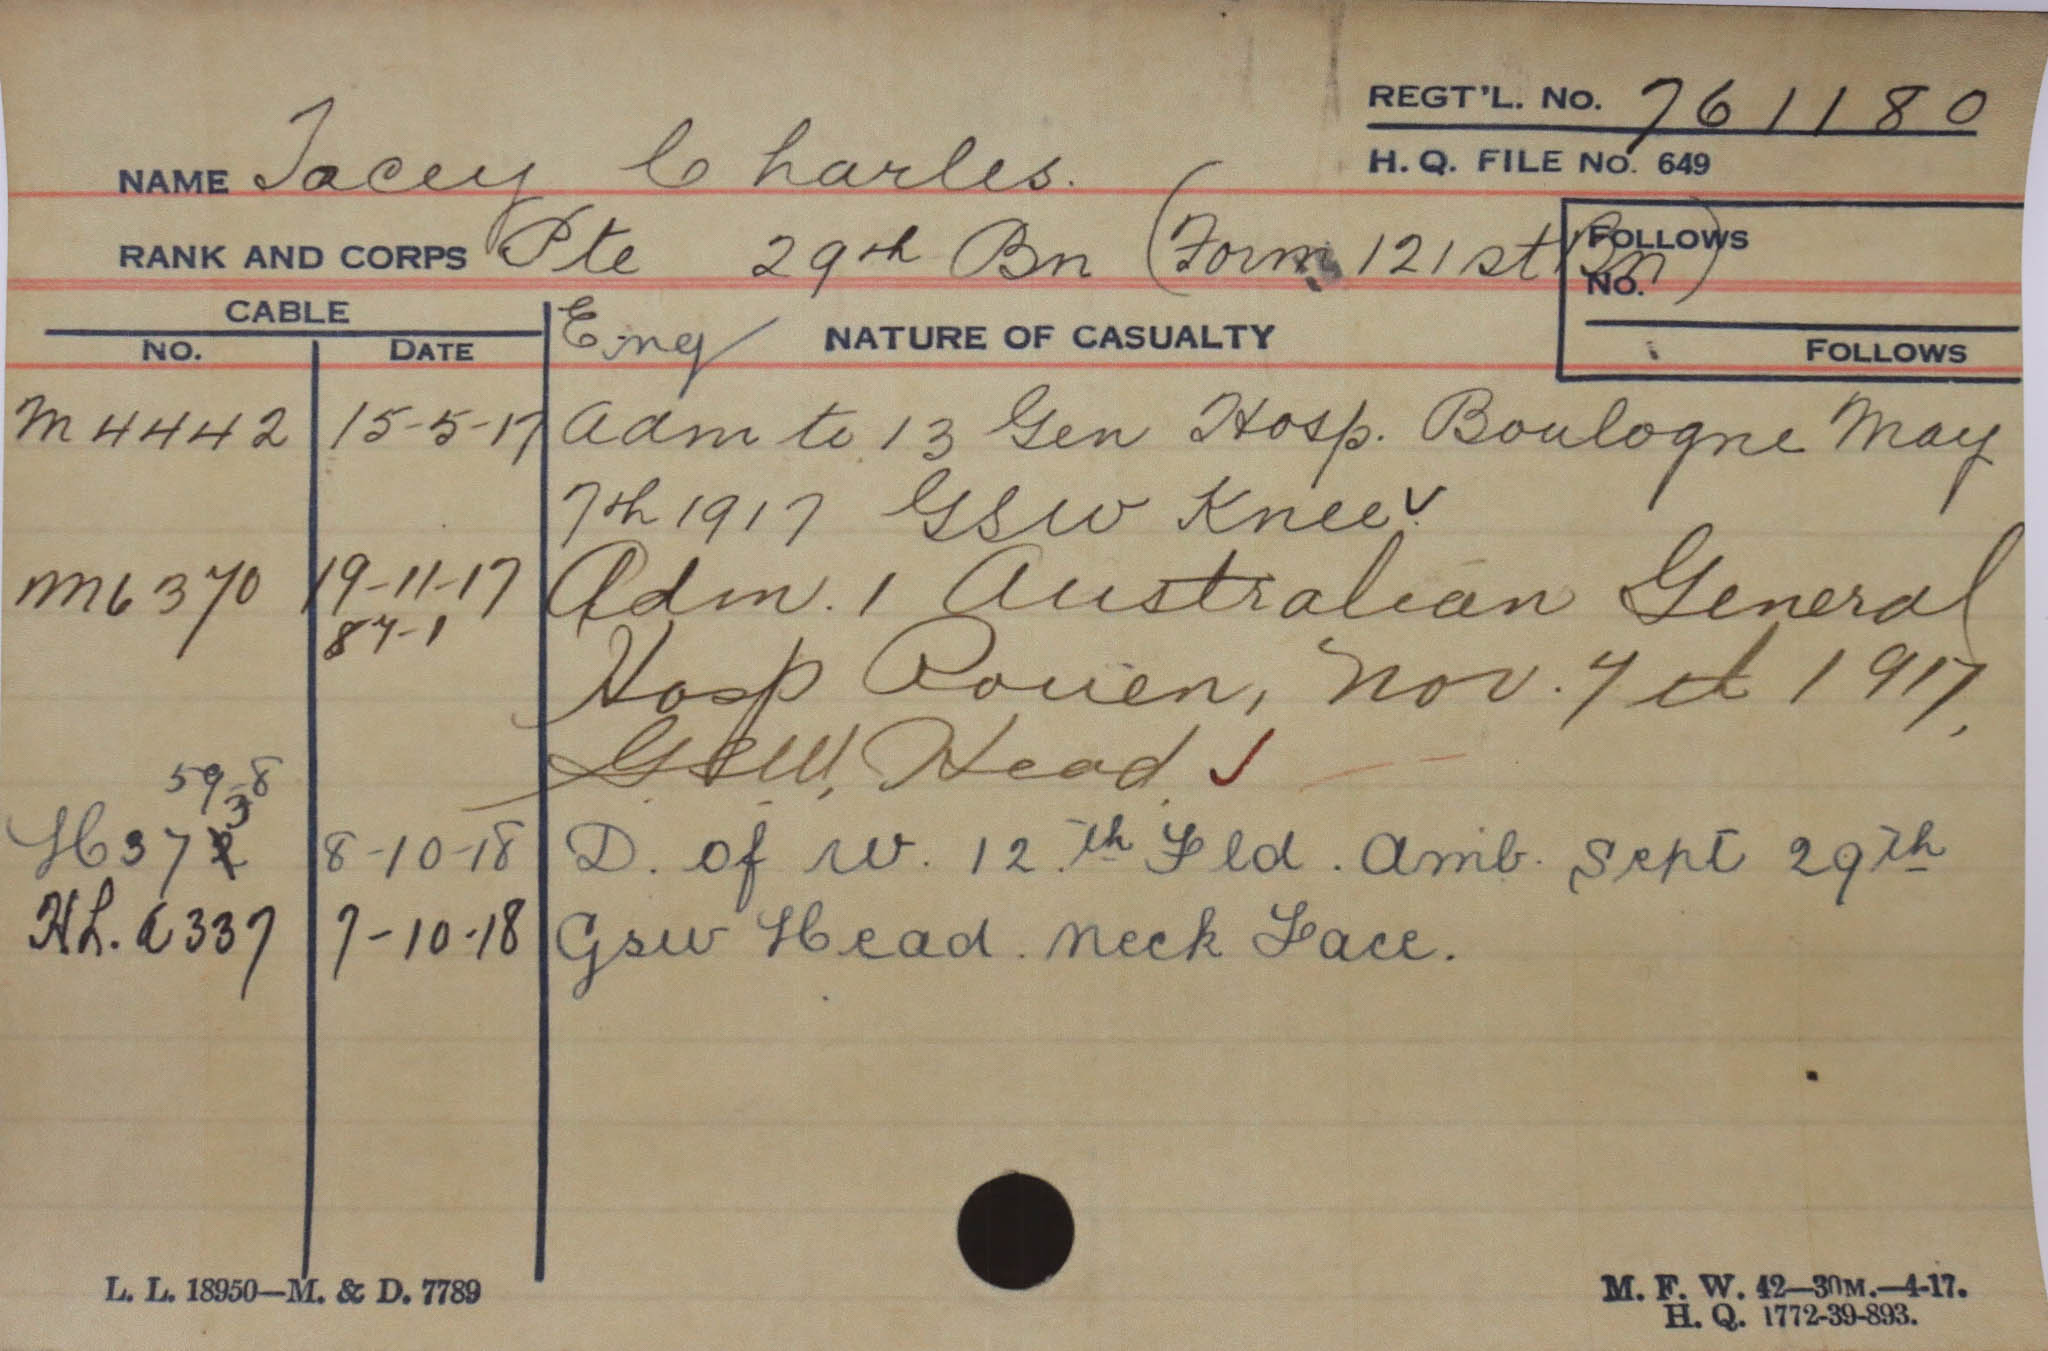 REGT'L. No. 761180
NAME Tacey Charles.
H. Q. FILE No. 649
RANK AND CORPS Pte 29th Bn (Form 121st Bn)
FOLLOWS
No.
CABLE
Eng
NATURE OF CASUALTY
NO.
DATE
FOLLOWS
M4442 15-5-17 Adm to 13 Gen Hosp. Boulogne May
7th 1917 GSW Knee
M6370 19-11-17 Adm. 1 Australian General
87-1
Hosp Rouen, Nov. 7th 1917,
GSW, Head ✓
59-8
H373 8-10-18 D. of W. 12th Fld. Amb. Sept 29th
HL. a337 7-10-18 Gsw Head. Neck Face.
L. L. 18950—M. & D. 7789
M. F. W. 42—30M.—4-17.
H. Q. 1772-39-893.